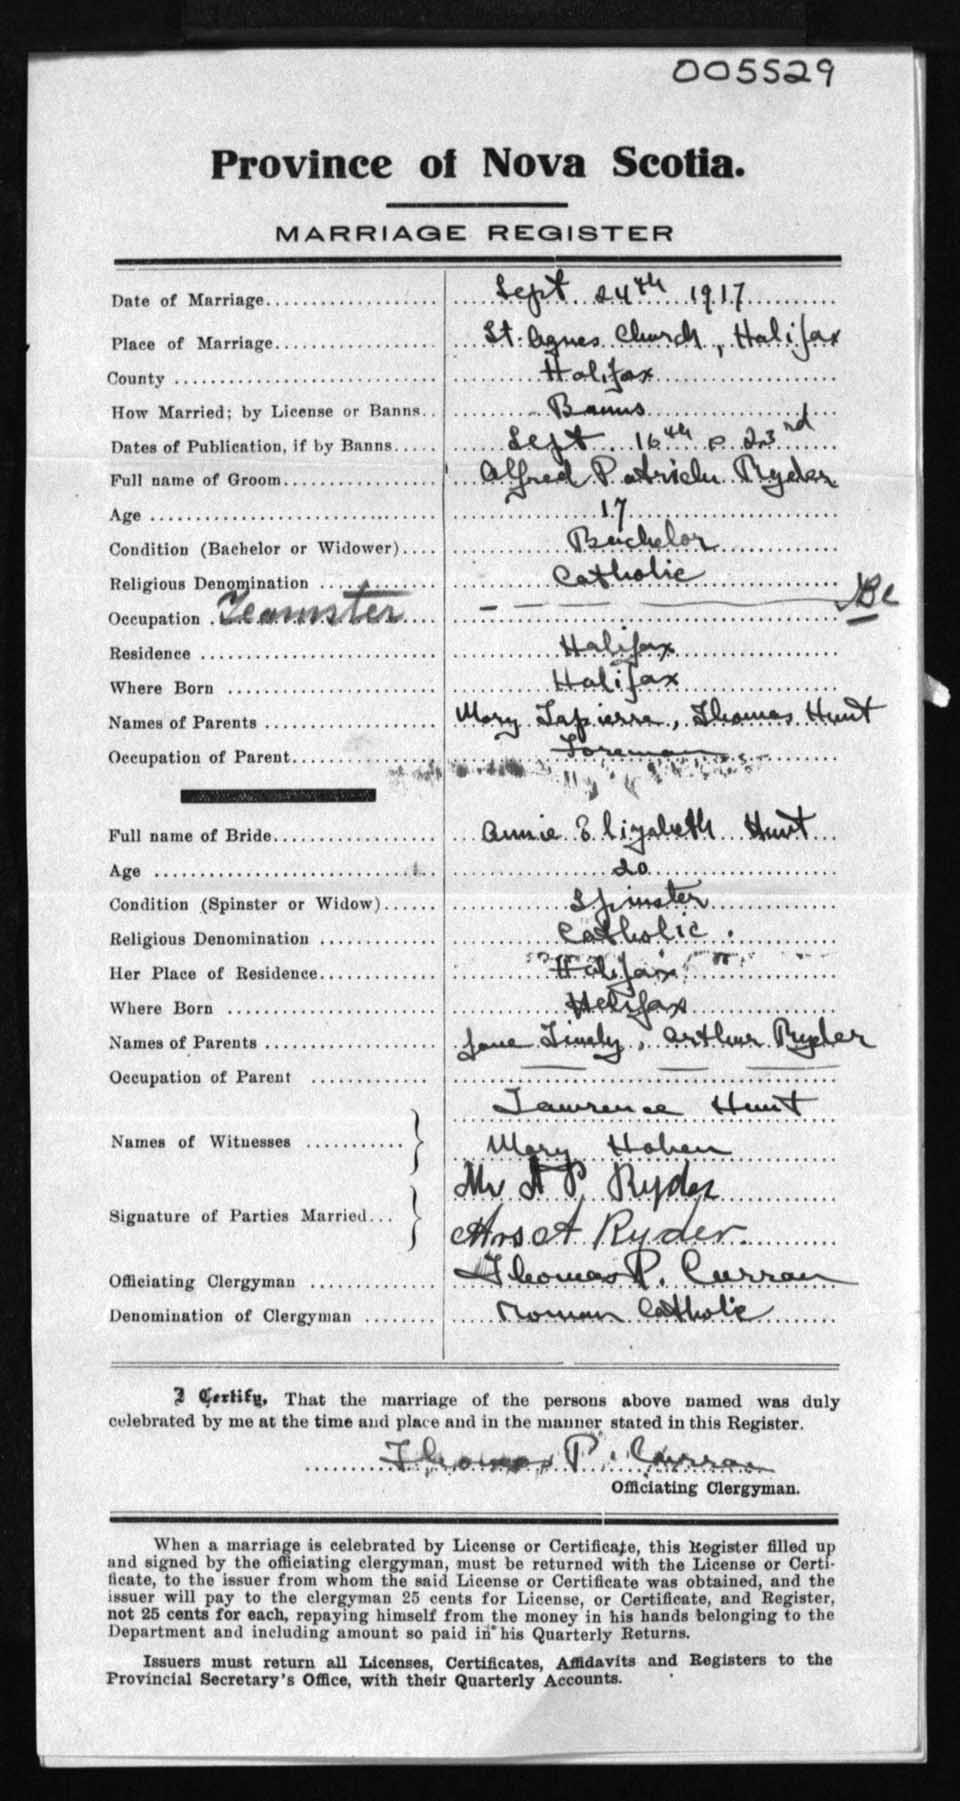 005529
Province of Nova Scotia.
MARRIAGE REGISTER
Date of Marriage Sept 24th 1917
Place of Marriage St. Agnes Church, Halifax
County Halifax
How Married; by License or Banns Banns
Dates of Publication, if by Banns Sept 16th & 23rd
Full name of Groom Alfred Patrick Ryder
Age 17
Condition (Bachelor or Widower) Bachelor
Religious Denomination Catholic
Occupation Teamster
Residence Halifax
Where Born Halifax
Names of Parents Mary Lapierre, Thomas Hunt
Occupation of Parent Foreman
Full name of Bride Annie Elizabeth Hunt
Age 20
Condition (Spinster or Widow) Spinster
Religious Denomination Catholic.
Her Place of Residence Halifax
Where Born Halifax
Names of Parents Jane, Arthur Ryder
Occupation of Parent
Lawrence Hunt
Names of Witnesses
Mary Hohen
Mr A P Ryder
Signature of Parties Married
Mrs A Ryder
Officiating Clergyman Thomas P. Curran
Denomination of Clergyman Roman Catholic
I Certify, That the marriage of the persons above named was duly
celebrated by me at the time and place and in the manner stated in this Register.
Thomas P. Curran
Officiating Clergyman.
When a marriage is celebrated by License or Certificate, this Register filled up
and signed by the officiating clergyman, must be returned with the License or Certi-
ficate, to the issuer from whom the said License or Certificate was obtained, and the
issuer will pay to the clergyman 25 cents for License, or Certificate, and Register,
not 25 cents for each, repaying himself from the money in his hands belonging to the
Department and including amount so paid in his Quarterly Returns.
Issuers must return all Licenses, Certificates, Affidavits and Registers to the
Provincial Secretary's Office, with their Quarterly Accounts.